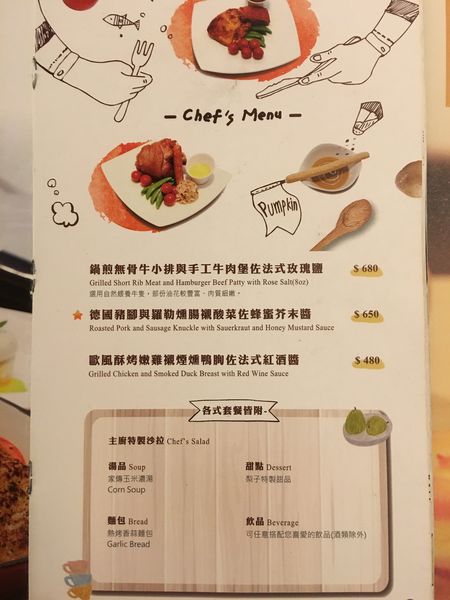 Chef's Menu
Pumpkin
鍋煎無骨牛小排與手工牛肉堡佐法式玫瑰鹽 $ 680
Grilled Short Rib Meat and Hamburger Beef Patty with Rose Salt(8oz)
選用自然餵養牛隻，部份油花較豐富、肉質細嫩。
德國豬腳與羅勒燻腸襯酸菜佐蜂蜜芥末醬 $ 650
Roasted Pork and Sausage Knuckle with Sauerkraut and Honey Mustard Sauce
歐風酥烤嫩雞襯煙燻鴨胸佐法式紅酒醬 $ 480
Grilled Chicken and Smoked Duck Breast with Red Wine Sauce
各式套餐皆附
主廚特製沙拉 Chef's Salad
湯品 Soup
家傳玉米濃湯
Corn Soup
甜點 Dessert
梨子特製甜品
麵包 Bread
熱烤香蒜麵包
Garlic Bread
飲品 Beverage
可任意搭配您喜愛的飲品(酒類除外)